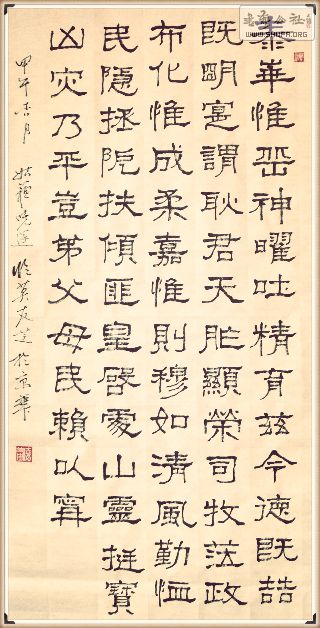 泰華惟岳神曜吐精育茲令德既喆
既朙寔謂耿君天胙顯榮司牧莅政
布化惟成柔嘉惟則穆如清風勤恤
民隱拯阨扶傾匪皇啓處山靈挺寶
凶灾乃平豈弟父母民賴以寧
甲午 月 臨莫友芝於京華
書法公社
WWW.SHUFA.ORG